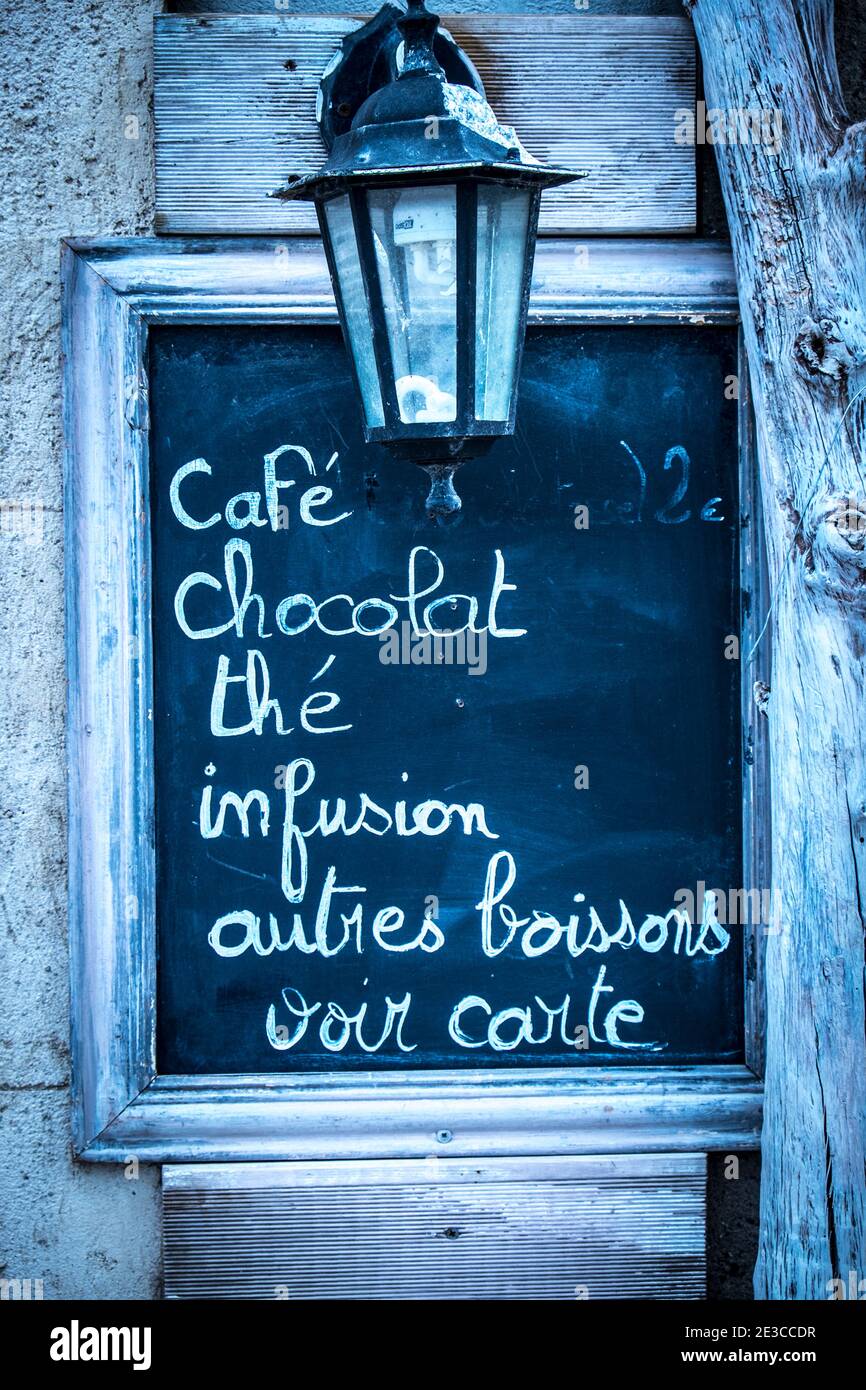 Café
chocolat
thé
infusion
autres boissons
voir carte
alamy
Image ID: 2E3CCDR
www.alamy.com